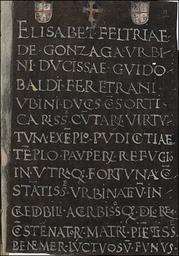 ELISABET FELTRIAE
DE GONZAGA VRBI
NI DVCISSAE GVIDO
BALDI FERETRANI
VBINI DVCIS CŌSORTI
CARISS CVTARV̄ VIRTV
TVM EXĒPLO PVDICITIAE
TĒPLO PAVPERV̄ REFVGIO
IN VTRQ FORTVNA CŌ
STATISS VRBINATVM IN
CREDIBILI ACERBISSOQ DLORE
MATRI PIETISS
BENEMER LVCTVOSV̄ FVNVS